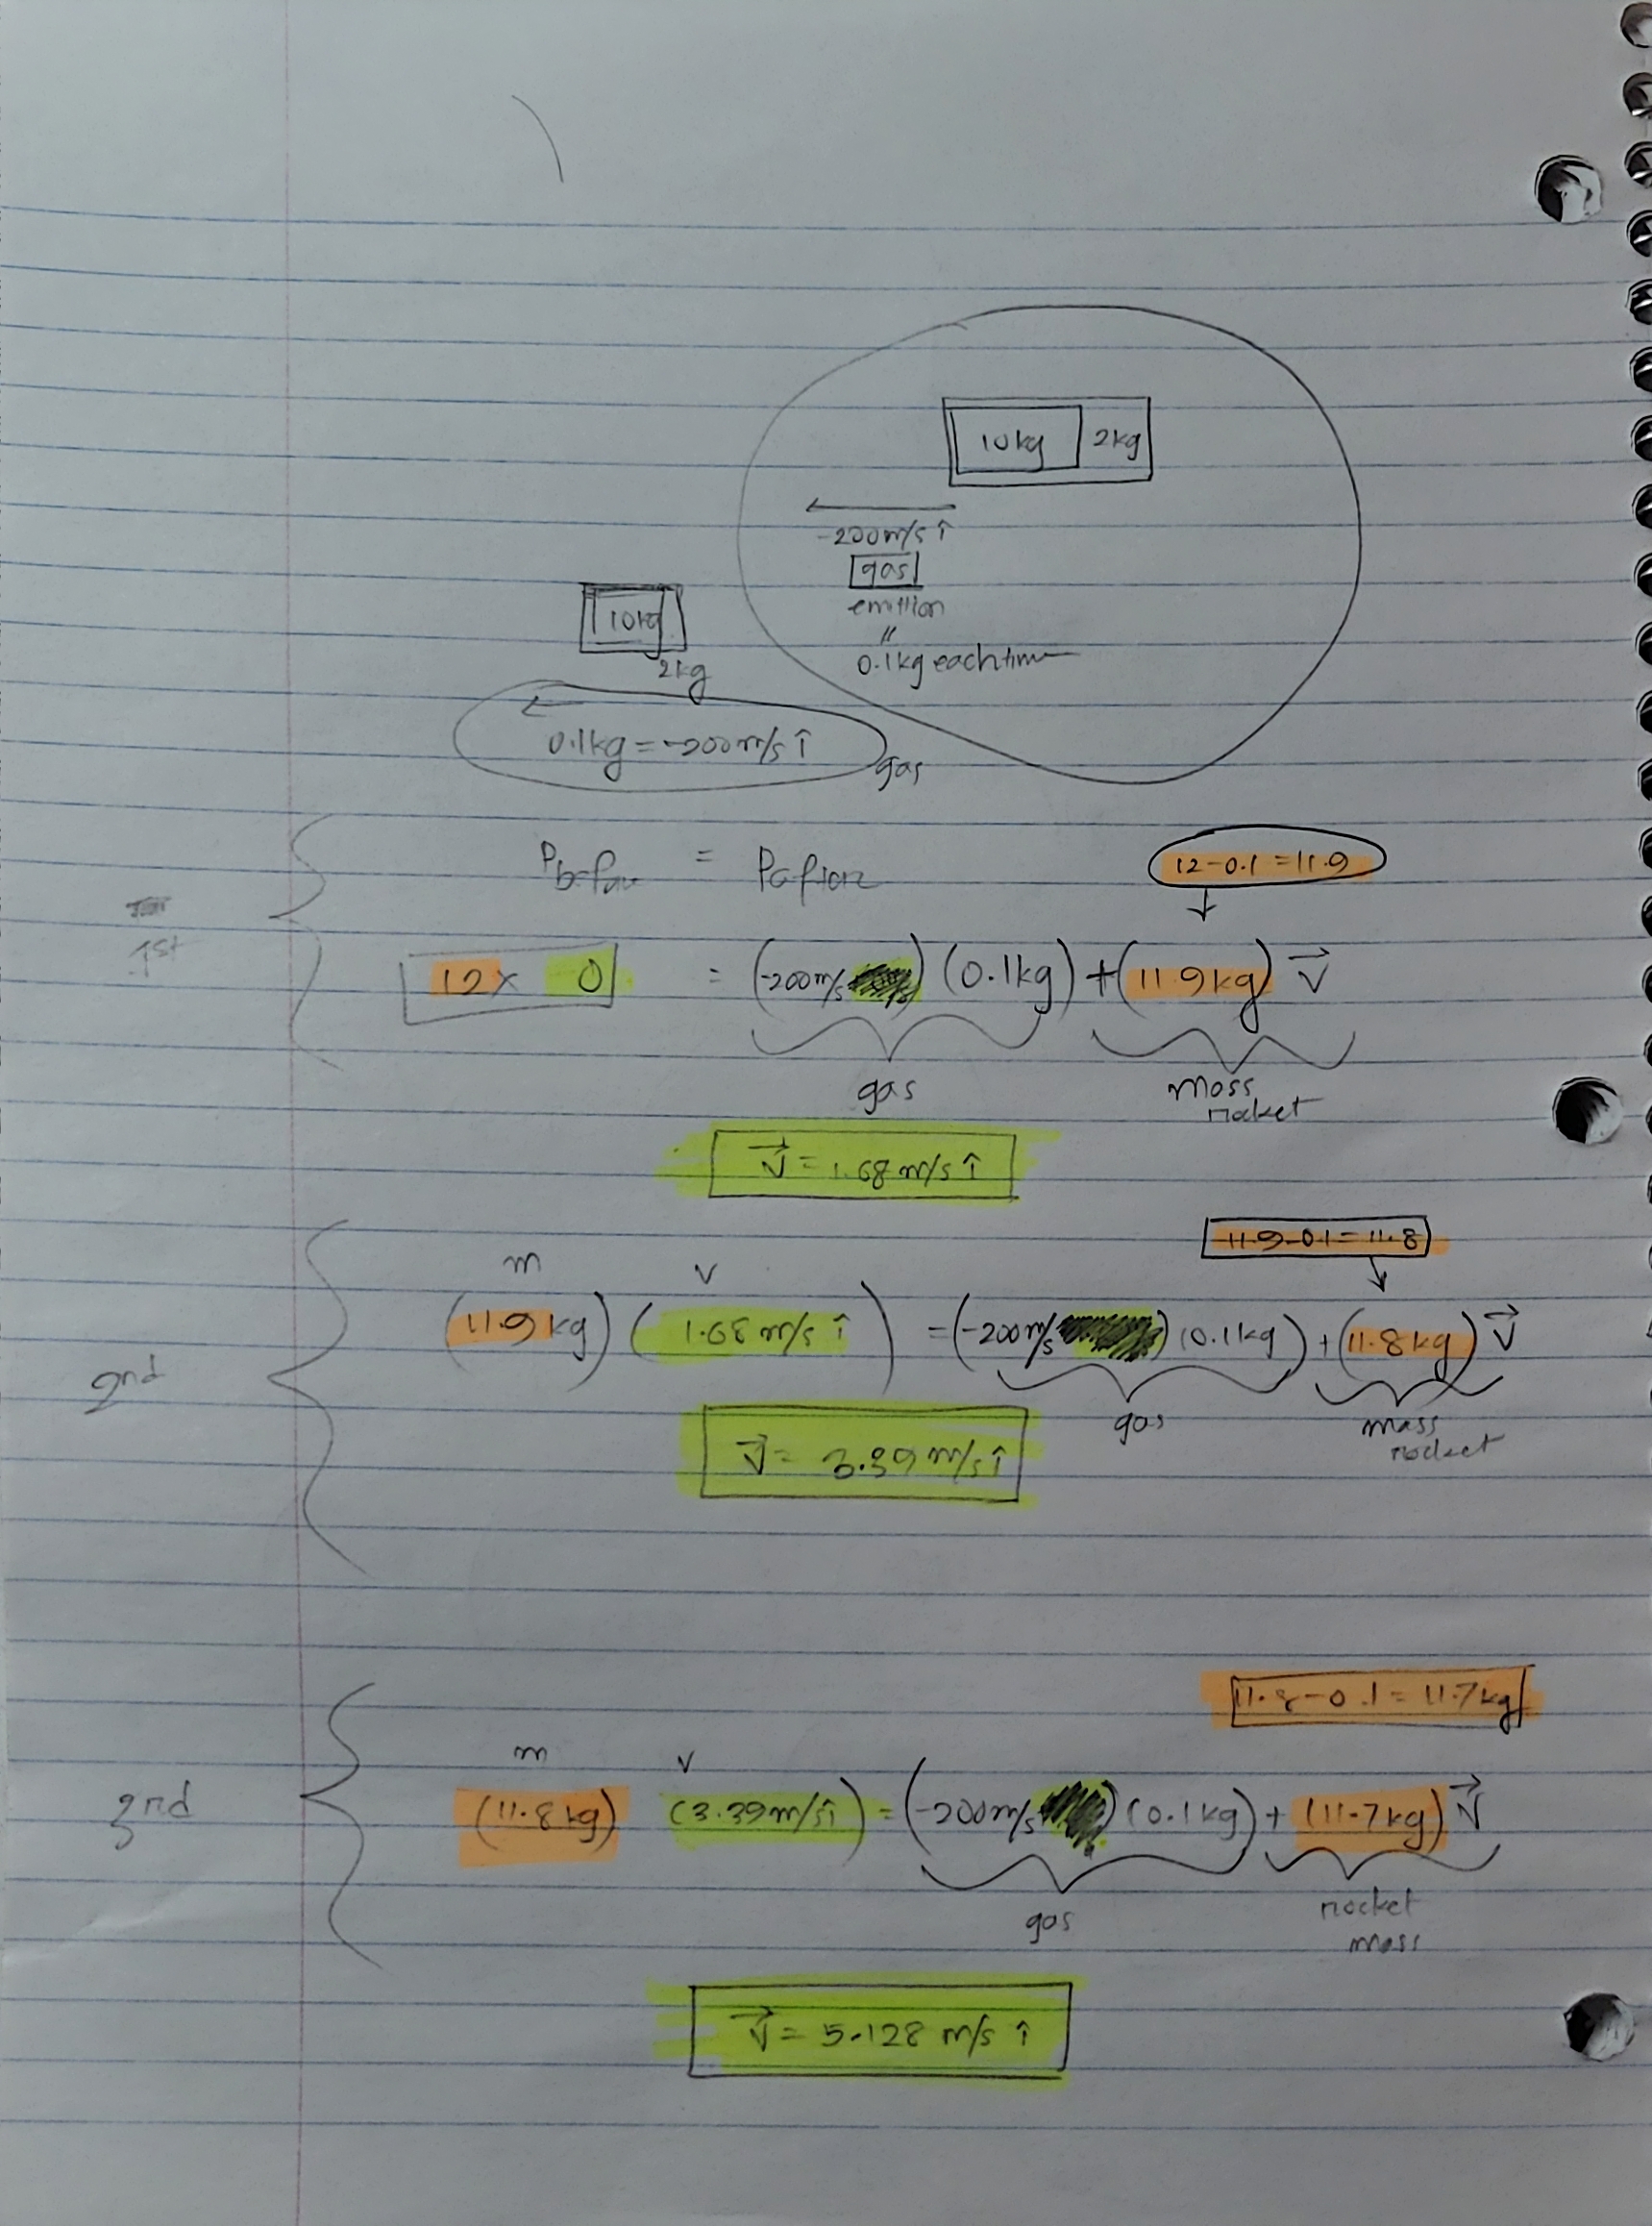 10kg 2kg
-200m/s î
gas
emittion
"
0.1kg each time
10kg
2kg
0.1kg = -200m/s î
gas
P before = P after
12-0.1 = 11.9
1st
12 x 0 = (-200m/s) (0.1kg) + (11.9kg) v⃗
gas
mass
rocket
v⃗ = 1.68 m/s î
11.9-0.1 = 11.8
m v
(11.9kg) (1.68 m/s î) = (-200m/s) (0.1kg) + (11.8kg) v⃗
2nd
gas
mass
rocket
v⃗ = 3.39 m/s î
11.8-0.1 = 11.7kg
m v
3nd
(11.8kg) (3.39m/s î) = (-200m/s) (0.1kg) + (11.7kg) v⃗
gas
rocket
mass
v⃗ = 5.128 m/s î